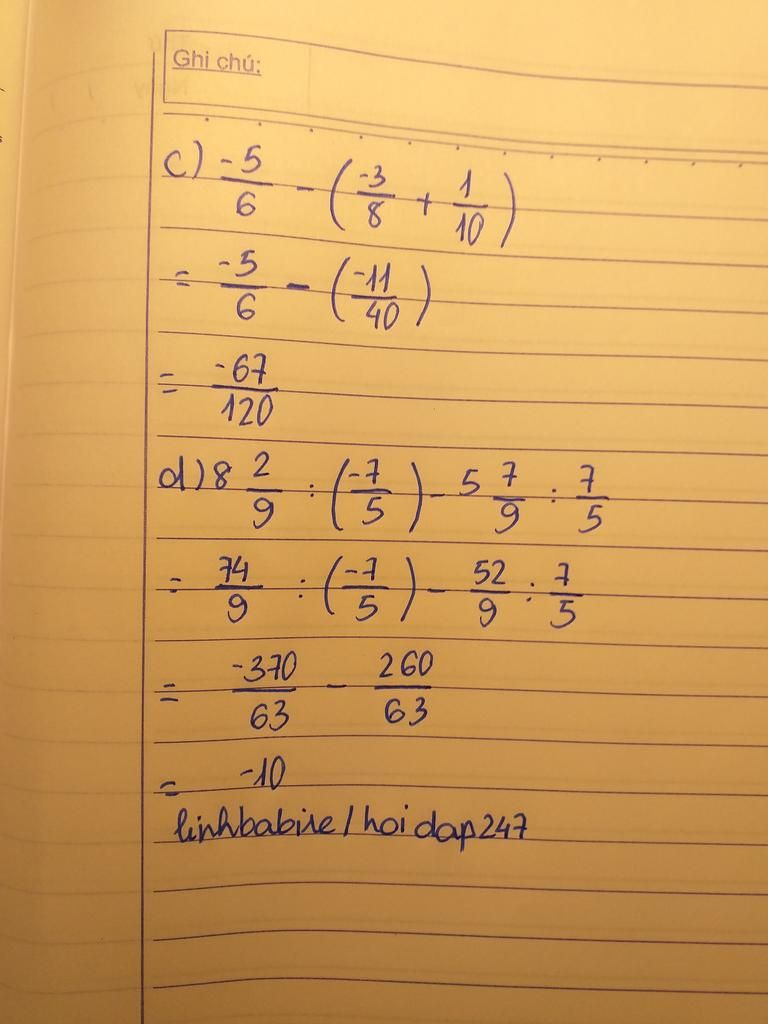 Ghi chú:
c) -5/6 - (-3/8 + 1/10)
= -5/6 - (-11/40)
= -67/120
d) 8 2/9 : (-7/5) - 5 7/9 : 7/5
= 74/9 : (-7/5) - 52/9 : 7/5
= -370/63 - 260/63
= -10
linhbabie/hoidap247